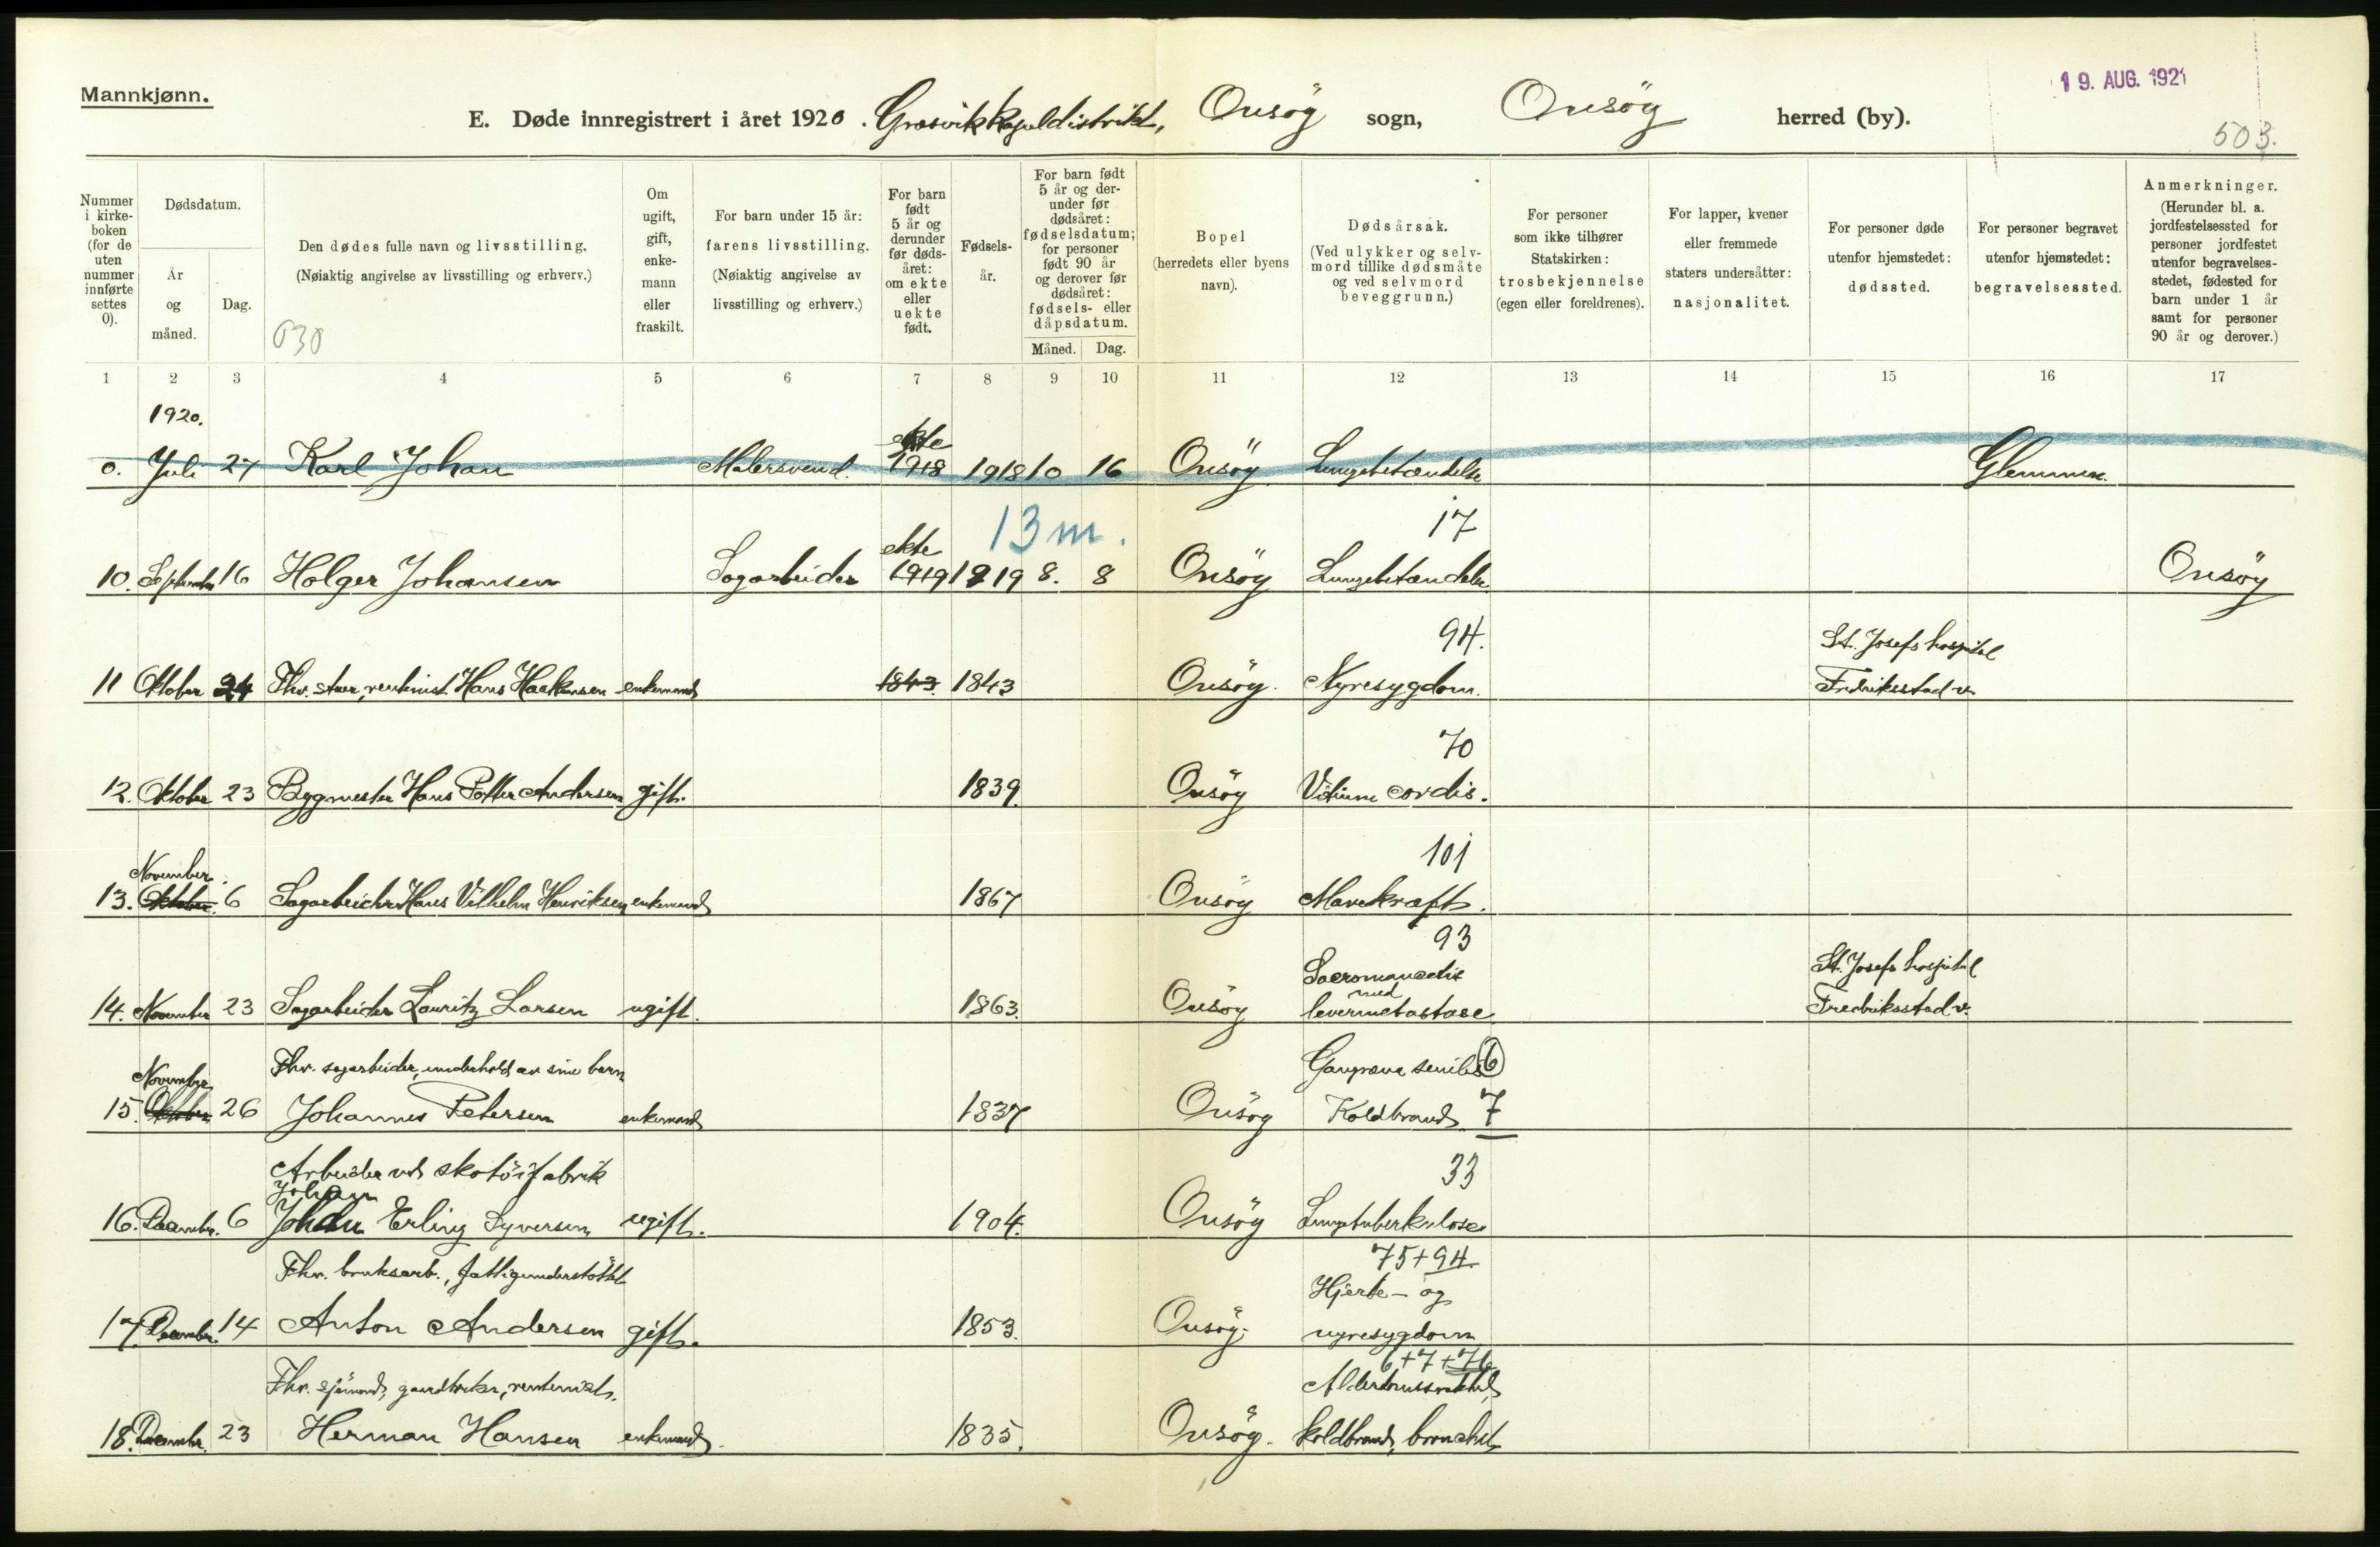 Mannkjønn.
19. AUG. 1921
E. Døde innregistrert i året 1920. Græsvik kapeldistrikt, Onsöy sogn, Onsöy herred (by).
503.
Nummer i kirkeboken (for de uten nummer innførte settes 0).
Dødsdatum.
År og måned.
Dag.
Den dødes fulle navn og livsstilling.
(Nøiaktig angivelse av livsstilling og erhverv.)
030
Om ugift, gift, enkemann eller fraskilt.
For barn under 15 år: farens livsstilling.
(Nøiaktig angivelse av livsstilling og erhverv.)
For barn født 5 år og derunder før dødsåret: om ekte eller uekte født.
Fødselsår.
For barn født 5 år og derunder før dødsåret: fødselsdatum; for personer født 90 år og derover før dødsåret: fødsels- eller dåpsdatum.
Måned. Dag.
Bopel (herredets eller byens navn).
Dødsårsak.
(Ved ulykker og selvmord tillike dødsmåte og ved selvmord beveggrunn.)
For personer som ikke tilhører Statskirken: trosbekjennelse (egen eller foreldrenes).
For lapper, kvener eller fremmede staters undersåtter: nasjonalitet.
For personer døde utenfor hjemstedet: dødssted.
For personer begravet utenfor hjemstedet: begravelsessted.
Anmerkninger.
(Herunder bl. a. jordfestelsessted for personer jordfestet utenfor begravelsesstedet, fødested for barn under 1 år samt for personer 90 år og derover.)
1 2 3 4 5 6 7 8 9 10 11 12 13 14 15 16 17
1920.
ekte
0. Juli 27 Karl Johan Malersvend. 1918 1918 10 16 Onsöy Lungebetændelse Glemmen.
13 m. 17
ekte
10. September 16 Holger Johansen Sagarbeider 1919 1919 8. 8 Onsöy Lungebetændelse. Onsöy
94. St. Josefs hospital
11 Oktober 24 Fhv. stuer, rentenist Hans Haakensen enkemand 1843 1843 Onsöy. Nyresygdom. Fredriksstad v.
70
12. Oktober 23 Bygmester Hans Petter Andersen gift. 1839. Onsöy Vitium cordis.
101
November.
13. Oktober. 6 Sagarbeider Hans Vilhelm Henriksen enkemand 1867 Onsöy Mavekræft.
93
St. Josefs hospital
14. November 23 Sagarbeider Lauritz Larsen ugift. 1863. Onsöy med levermetastase Fredriksstad v.
Fhv. sagarbeider, underholdt av sine barn Gangræna senilis 6
November
15. Oktober 26 Johannes Petersen enkemand 1837 Onsöy Koldbrand 7
Arbeider ved skotöifabrik 33
Johan
16. Decembr. 6 Johan Erling Syversen ugift. 1904. Onsöy Lungetuberkulose
Fhv. bruksarb., fattigunderstöttet 75+94
Hjerte- og
17. December. 14 Anton Andersen gift. 1853. Onsöy. nyresygdom
6+7+76
Fhv. sjömand, gaardbruker, rentenist. Alderdomssvakhet,
18. Decembr. 23 Herman Hansen enkemand. 1835. Onsöy. koldbrand, bronchit